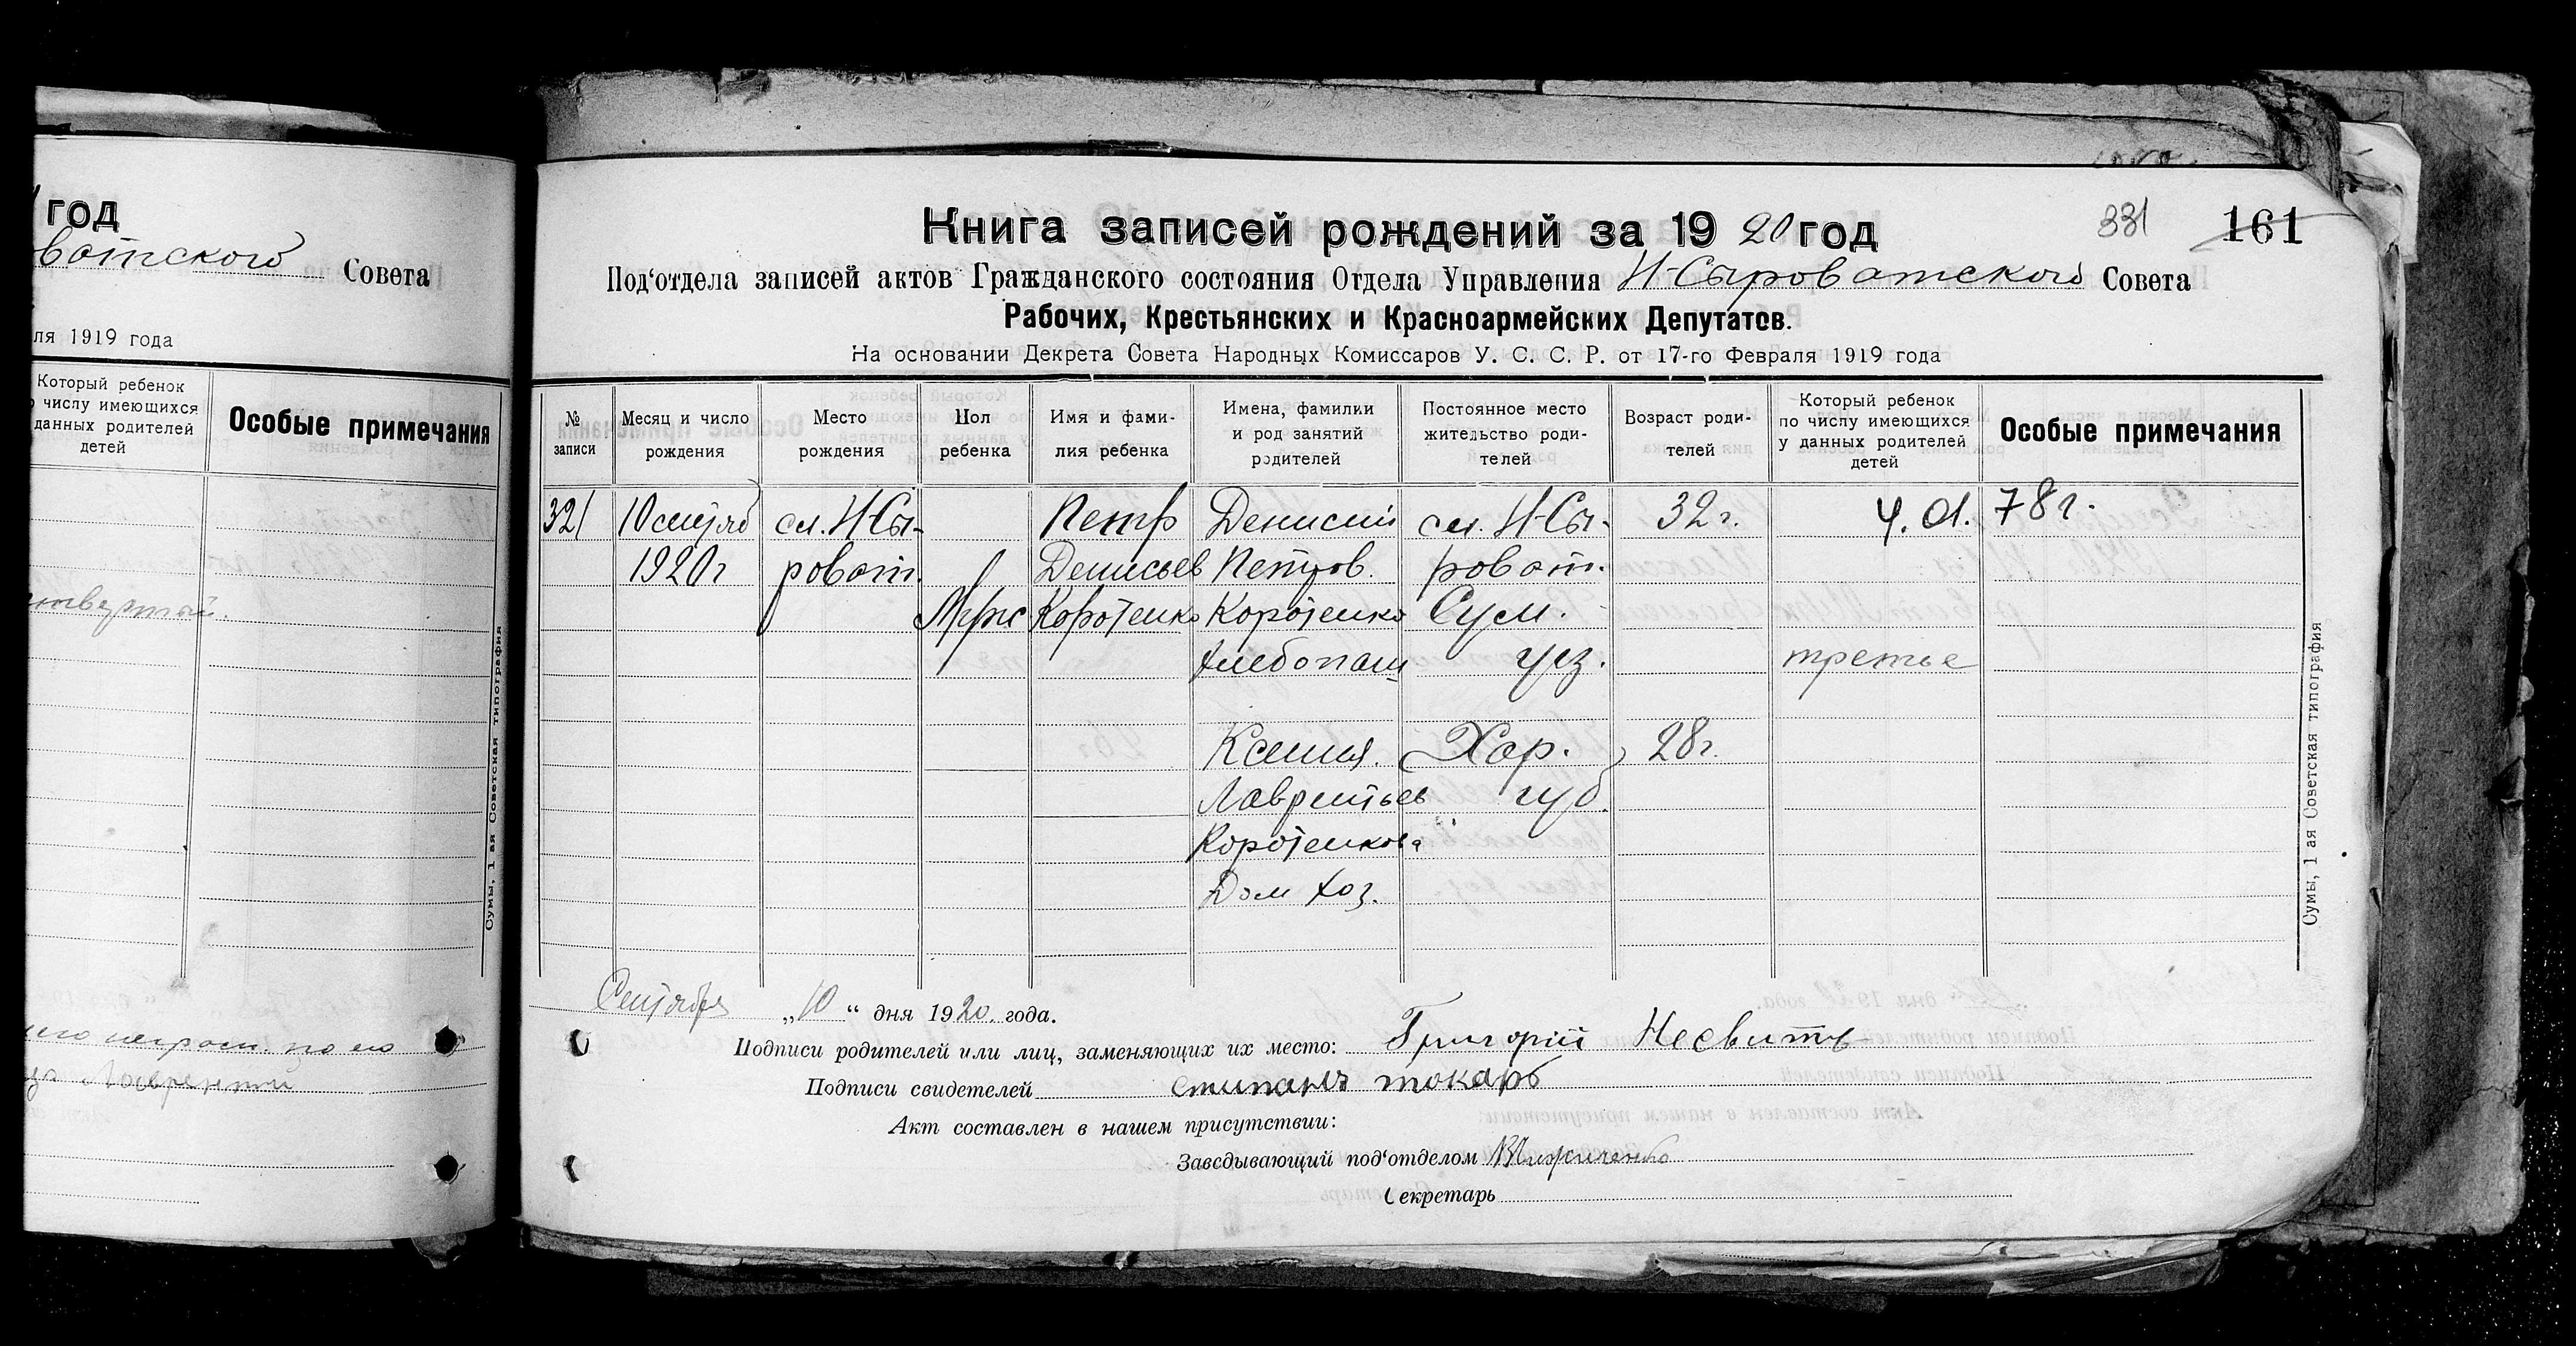 год
ватского Совета
ля 1919 года
Который ребенок
числу имеющихся
данных родителей
детей
Особые примечания
Сумы, 1 ая Советская типография
331 161
Книга записей рождений за 1920 год
Под‘отдела записей актов Гражданского состояния Отдела Управления Н-Сыроватского Совета
Рабочих, Крестьянских и Красноармейских Депутатов.
На основании Декрета Совета Народных Комиссаров У. С. С. Р. от 17-го Февраля 1919 года
№ записи
Месяц и число рождения
Место рождения
Пол ребенка
Имя и фами-
лия ребенка
Имена, фамилии
и род занятий
родителей
Постоянное место
жительство роди-
телей
Возраст роди-
телей
Который ребенок
по числу имеющихся
у данных родителей
детей
Особые примечания
321 10 сентяб сл. Н-Сы- Петр Денисий сл. Н-Сы- 32 г. 78 г.
1920 г роват. Денисьев Петров. роват.
Мужс Коротенко Коротенко Сум.
хлебопаш уез. третье
Ксения. Хар. 28 г.
Лаврентьев губ.
Коротенкова
Дом хоз.
Сумы, 1 ая Советская типография
Сентября „10“ дня 1920 года.
Подписи родителей или лиц, заменяющих их место: Григорий Несвитъ
Подписи свидетелей стипанъ токарь
Акт составлен в нашем присутствии:
Заведывающий под‘отделом
Секретарь